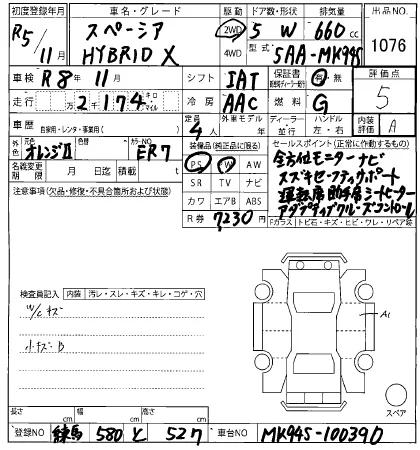 初度登録年月 車名・グレード 駆動 ドア数・形状 排気量 出品NO
R5/11月 スペーシア HYBRID X 2WD 4WD 5 W 660cc 1076
型式 5AA-MK94S
車検 R8年 11月 シフト IAT 保証書 有 無 評価点
走行 万 2千174 キロ マイル 冷房 AAC 燃料 G 5
車歴 自家用・レンタ・事業用( ) 定員 4人 外車モデル年 ディーラー 並行 ハンドル 左・右 内装 A
外色 元色 オレンジⅡ 色替 カラーNO ER7 装備品(純正品に限る) セールスポイント(正常に作動するもの)
名義変更期限 月 日迄 積載量 t
PS PW AW
SR TV ナビ
カワ エアB ABS
R券 7230円
全方位モニターナビ
スズキセーフティサポート
運転席助手席シートヒーター
アダプティブクルーズコントロール
注意事項(欠品・修復・不具合箇所および状態)
Fガラス トビ石・キズ・ヒビ・ワレ・リペア跡
検査員記入 内装 汚レ・スレ・キズ・キレ・コゲ・穴
W/Cキズ
小キズB
A1
スペア
長さ cm 幅 cm 高さ cm
登録NO 練馬 580 と 527 車台NO MK94S-100390